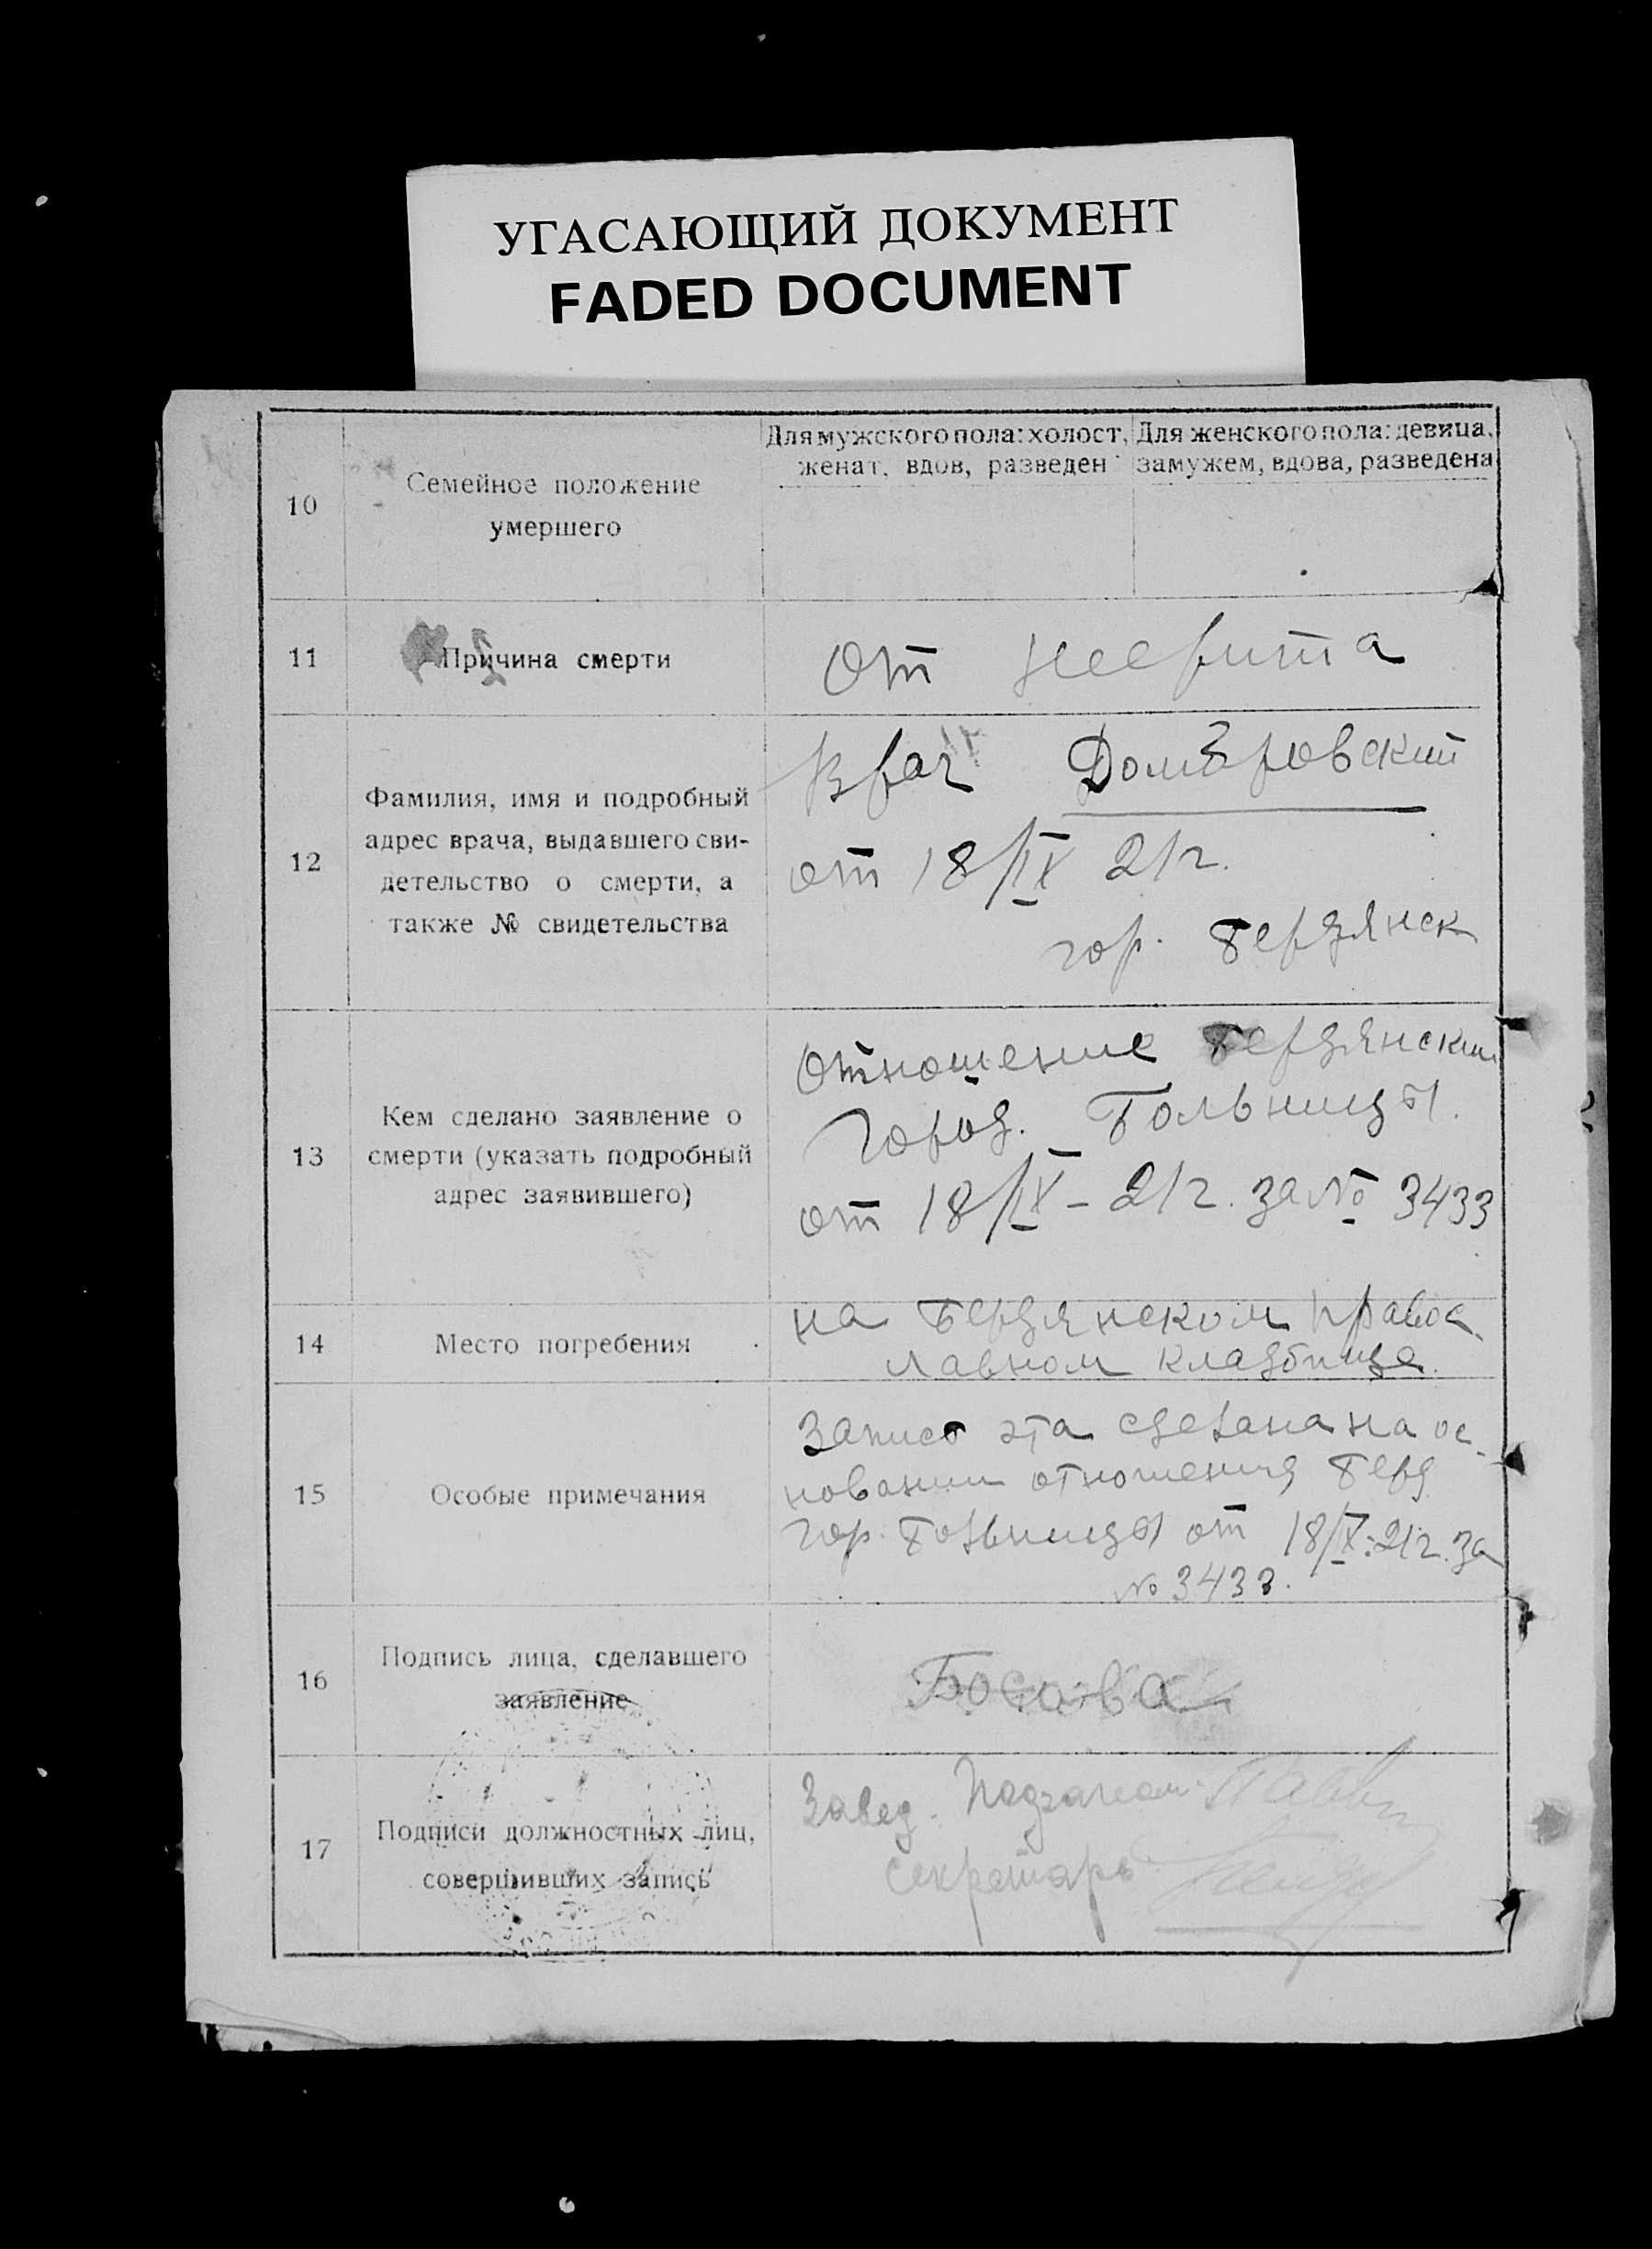 УГАСАЮЩИЙ ДОКУМЕНТ
FADED DOCUMENT
10
Семейное положение
умершего
Для мужского пола: холост,
женат, вдов, разведен
Для женского пола: девица,
замужем, вдова, разведена
11
Причина смерти
от нефрита
12
Фамилия, имя и подробный
адрес врача, выдавшего сви-
детельство о смерти, а
также № свидетельства
Врач Домбровский
от 18/IX 21г.
гор. Бердянск
13
Кем сделано заявление о
смерти (указать подробный
адрес заявившего)
Отношение Бердянской
Город. Больницы.
от 18/IX – 21г. за № 3433
14
Место погребения
на Бердянском правос-
лавном кладбище.
15
Особые примечания
Запись эта сделана на ос-
новании отношения Берд.
Гор. Больницы от 18/IX-21г. за
№ 3433.
16
Подпись лица, сделавшего
заявление
17
Подписи должностных лиц,
совершивших запись
Завед.
Секретарь